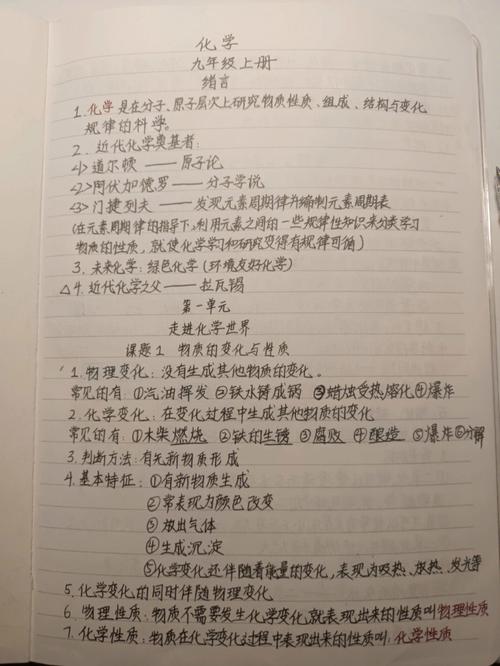 化学
九年级上册
绪言
1. 化学是在分子、原子层次上研究物质性质、组成、结构与变化
规律的科学。
2. 近代化学奠基者:
<1>道尔顿 —— 原子论
<2>阿伏加德罗 —— 分子学说
<3>门捷列夫 —— 发现元素周期律并编制元素周期表
(在元素周期律的指导下,利用元素之间的一些规律性知识来分类学习
物质的性质,就使化学学习和研究变得有规律可循)
3. 未来化学:绿色化学(环境友好化学)
△4. 近代化学之父 —— 拉瓦锡
第一单元
走进化学世界
课题1 物质的变化与性质
1. 物理变化:没有生成其他物质的变化。
常见的有:①汽油挥发 ②铁水铸成锅 ③蜡烛受热熔化④爆炸
2. 化学变化:在变化过程中生成其他物质的变化
常见的有:①木柴燃烧 ②铁的生锈 ③腐败 ④酿造 ⑤爆炸⑥分解
3. 判断方法:有无新物质形成
4. 基本特征:①有新物质生成
②常表现为颜色改变
③放出气体
④生成沉淀
⑤化学变化还伴随着能量的变化,表现为吸热、放热、发光等
5. 化学变化的同时伴随物理变化
6. 物理性质:物质不需要发生化学变化就表现出来的性质叫物理性质
7. 化学性质:物质在化学变化过程中表现出来的性质叫:化学性质